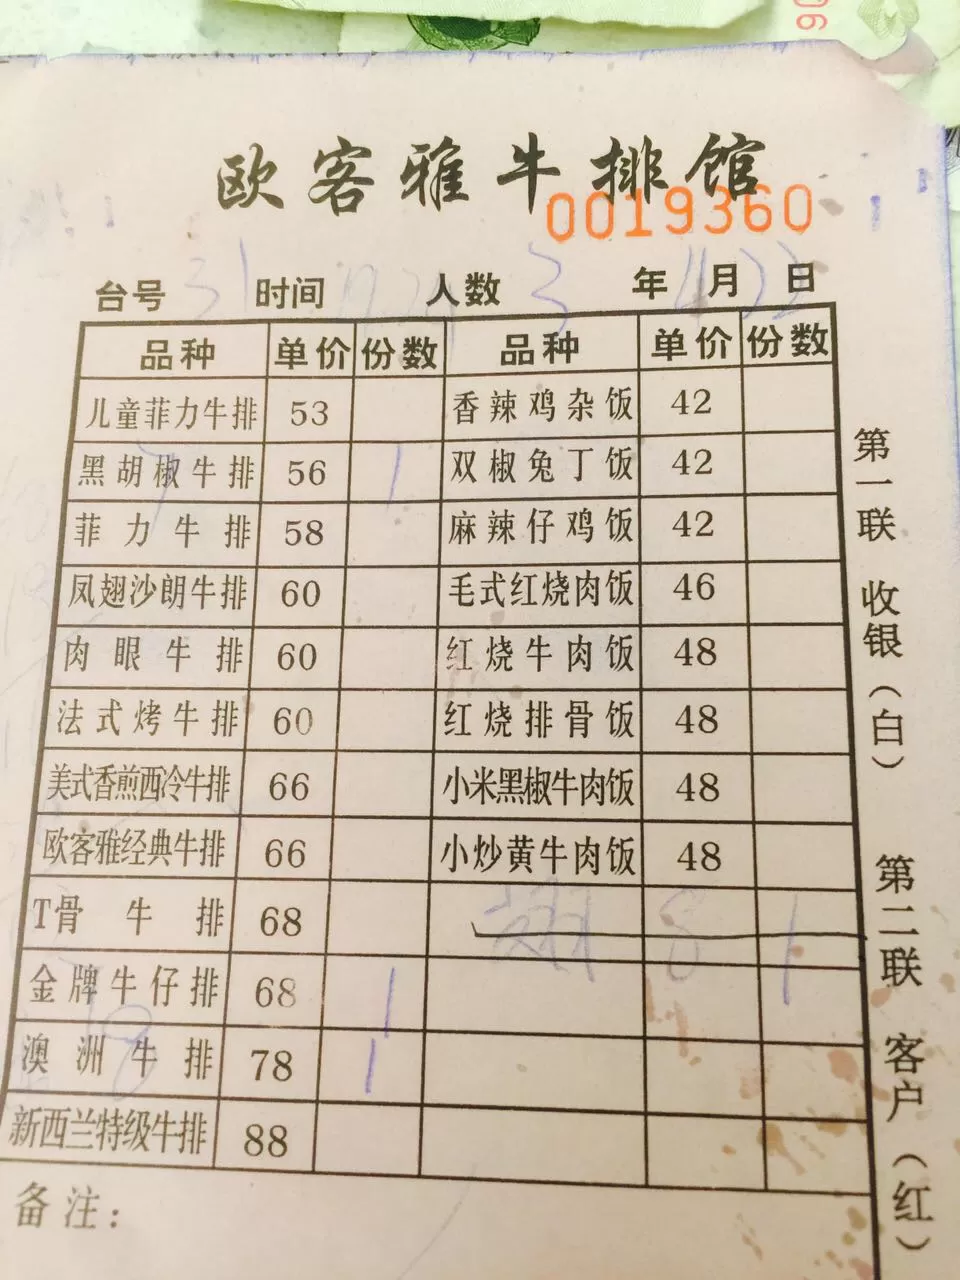 欧客雅牛排馆
0019360
台号 31 时间 人数 3 年 月 22 日
品种 单价 份数 品种 单价 份数
儿童菲力牛排 53 香辣鸡杂饭 42
黑胡椒牛排 56 1 双椒兔丁饭 42
菲力牛排 58 麻辣仔鸡饭 42
凤翅沙朗牛排 60 毛式红烧肉饭 46
肉眼牛排 60 红烧牛肉饭 48
法式烤牛排 60 红烧排骨饭 48
美式香煎西冷牛排 66 小米黑椒牛肉饭 48
欧客雅经典牛排 66 小炒黄牛肉饭 48
T骨牛排 68 8 1
金牌牛仔排 68 1
澳洲牛排 78 1
新西兰特级牛排 88
备注：
第一联 收银（白） 第二联 客户（红）
06